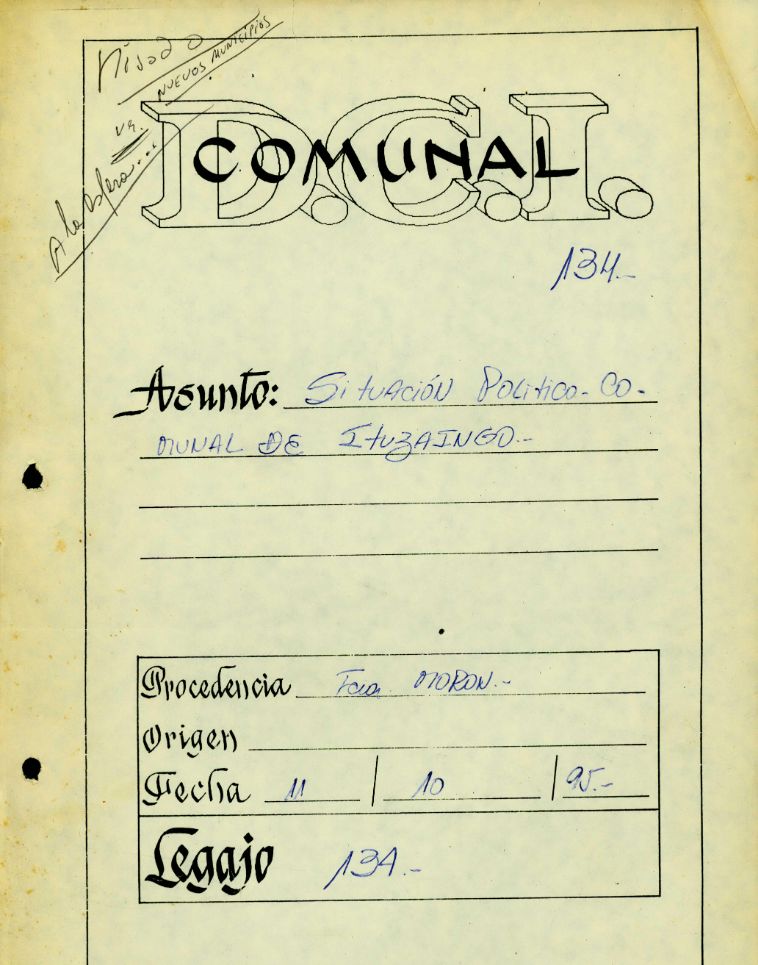 Visado
NUEVOS MUNICIPIOS
VR.
A la Espera...
D.C.I.
COMUNAL
134.-
Asunto: SituACIÓN Politico-Co-
MUNAL DE ItuzAINGO.-
Procedencia Fcia MORON.-
Origen
Fecha 11 / 10 / 95.-
Legajo 134.-